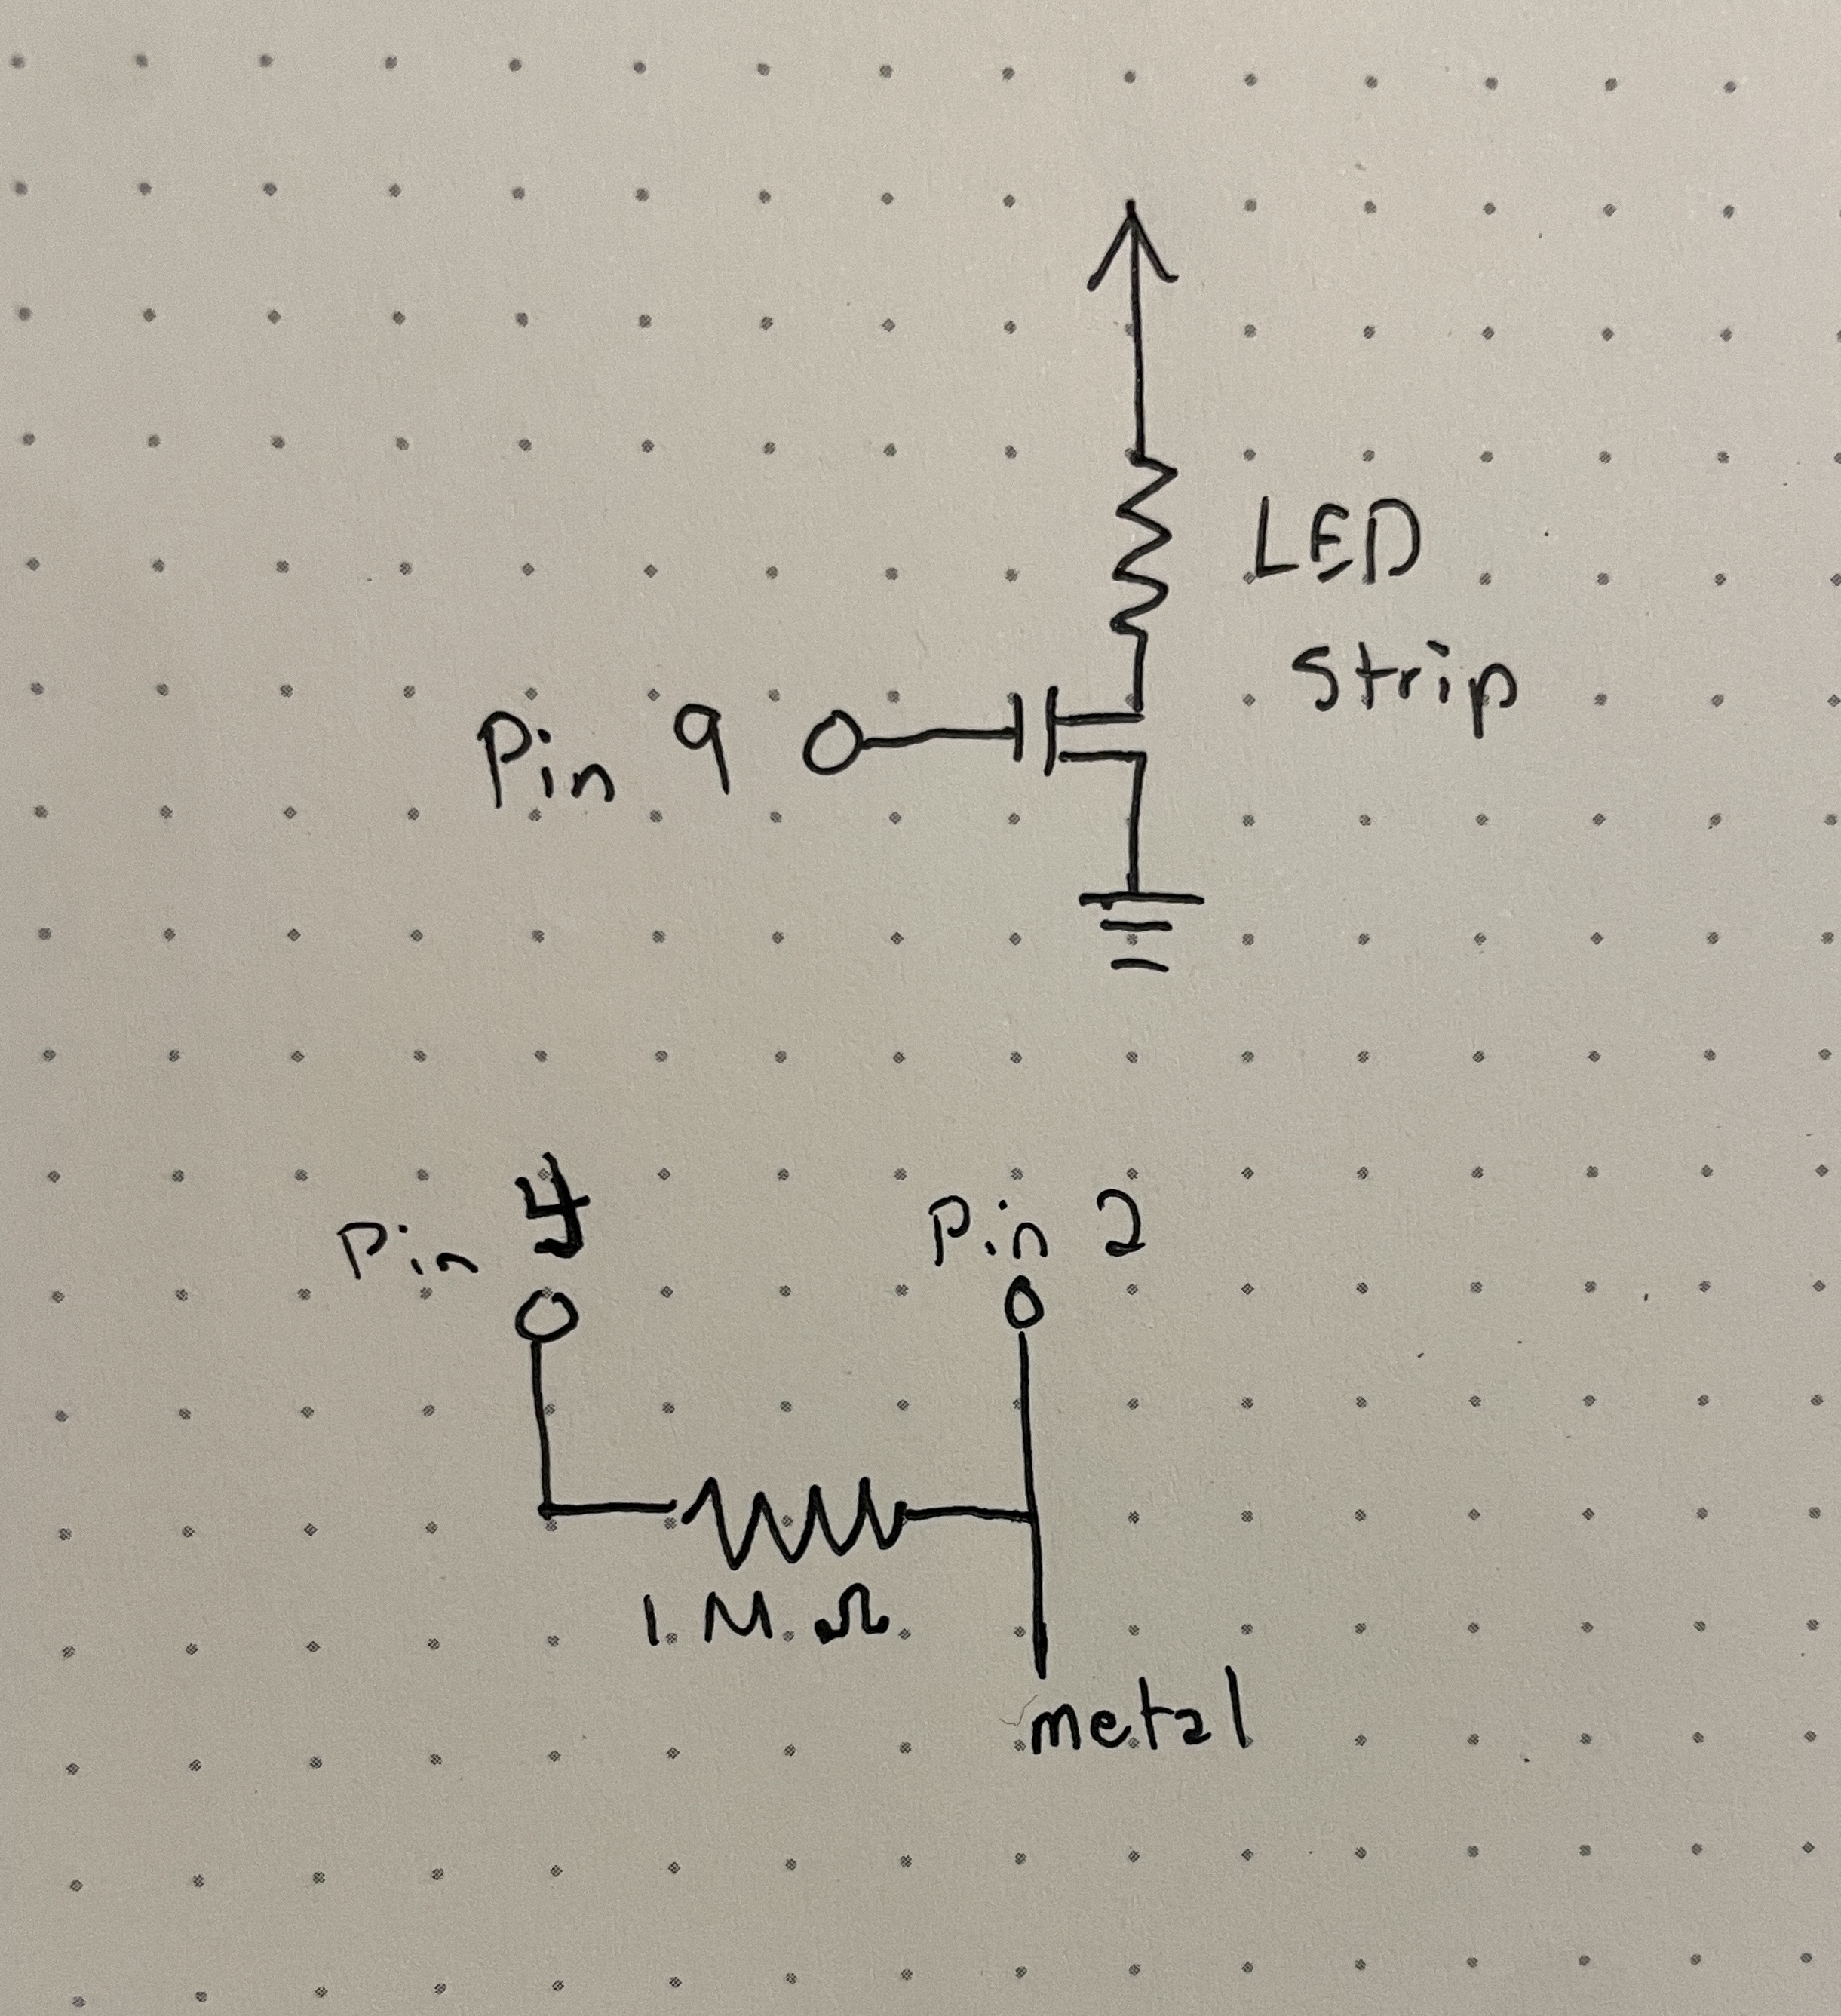 LED
Strip
Pin 9
Pin 4
Pin 2
1 M Ω
metal